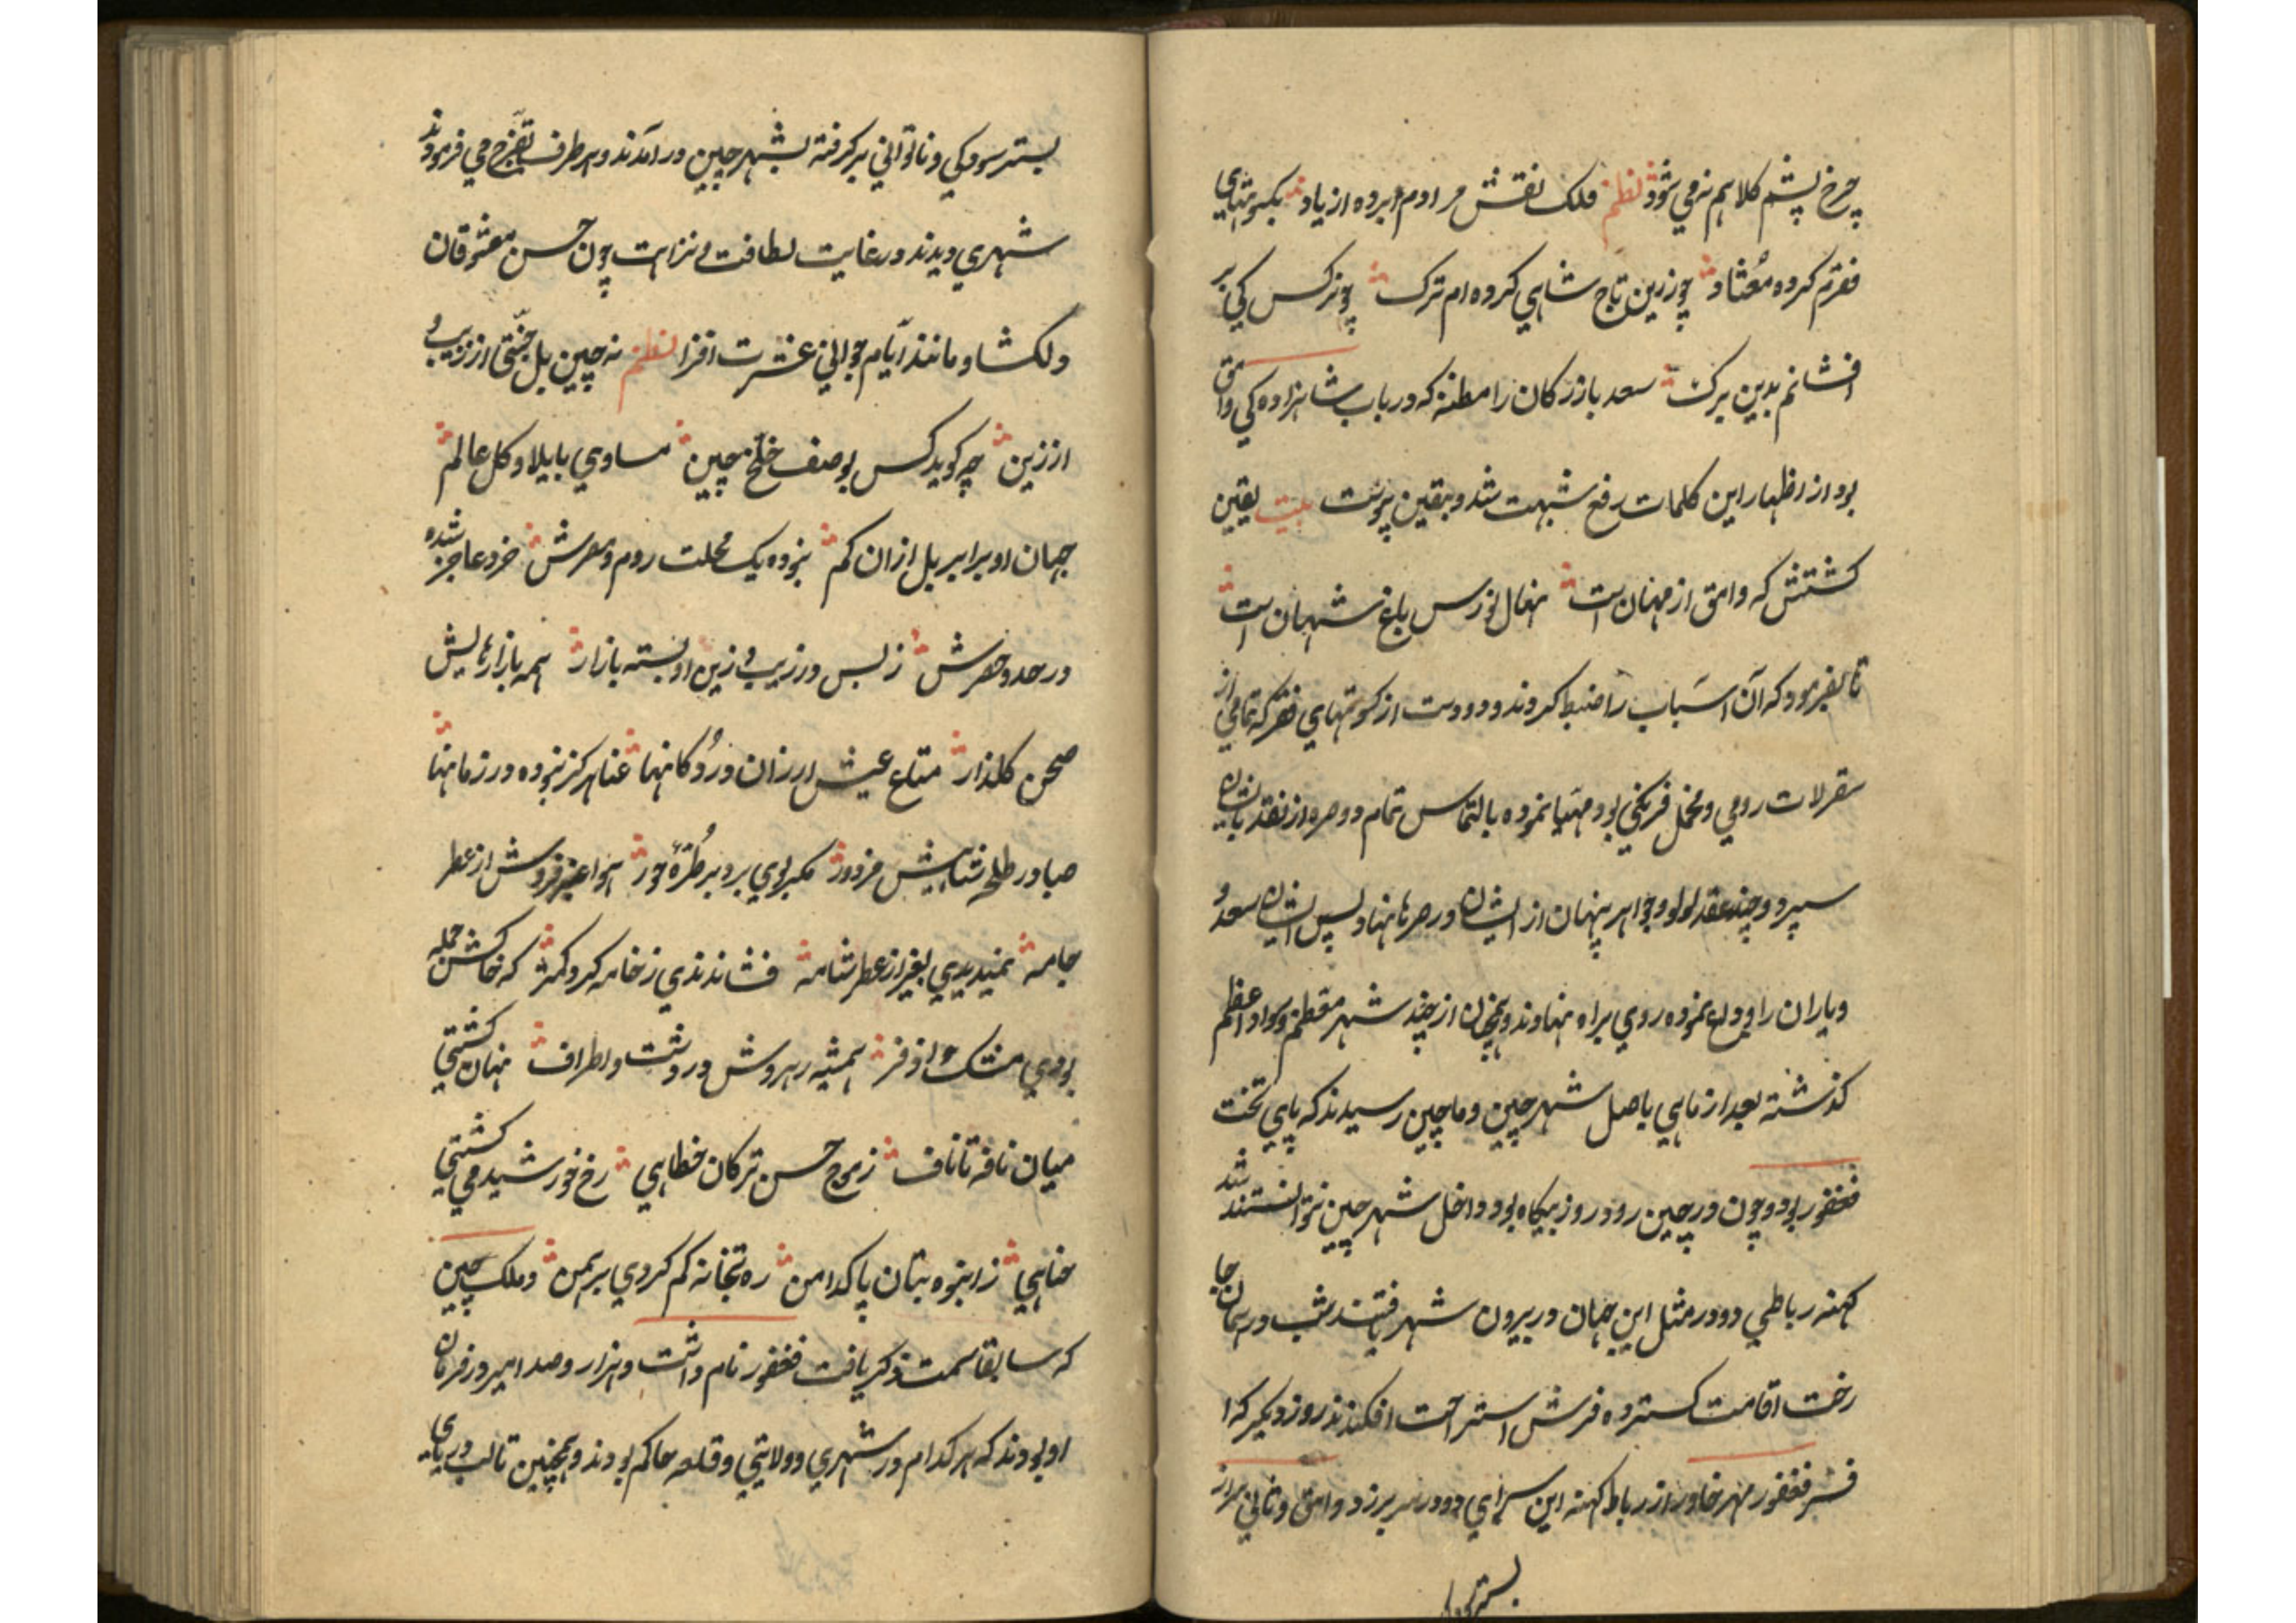 چرخ پشم کلاهم نمی شود نظم فلک نقش مرادم برده از یاد بکسوتهای
فقرم کرده معتاد چو زرین تاج شاهی کرده ام ترک چو نرکس کی بر
افشانم بدین برک سعد بازرکان را مظنه که در باب شاهزاده کی وامق
بود از اظهار این کلمات رفع شبهت شد و بیقین پیوست بیت یقین
کشتش که وامق از مهان است نهال نورس باغ شهان است
تا بفرمود که آن اسباب را ضبط کردند و دو دست از کسوتهای فقر که تمامی از
سقرلات رومی و مخمل فرنکی بود مهیا نموده بالتماس تمام دو صره از نقد بایشان
سپرد و چند عقد لولو و جواهر پنهان از ایشان در صرها نهاد پس ایشان سعد و
و یاران را وداع نموده روی براه نهادند و همچنان از چند شهر معظم و سواد اعظم
کذشته بعد از ماهی باصل شهر چین و ماچین رسیدند که پای تخت
فغفور بود و چون در چین رود روز بیکاه بود داخل شهر چین نتوانستند شد
کهنه رباطی دو در مثل این جهان در بیرون شهر یافتند شب در همان جا
رخت اقامت کسترده فرش استراحت افکندند روز دیکر که از
فر فغفور مهر خاور از رباط کهنه این سرای دو در سر بر زد وامق و ثانی سر از
بستر سوکی
بستر سوکی و ناتوانی بر کرفته بشهر چین در آمدند و هر طرف تفرج می فرمودند
شهری دیدند در غایت لطافت و نزاهت چون حسن معشوقان
دلکشا و مانند ایام جوانی عشرت افزا نظم نه چین بل جنتی از زیب و
از زین چه کوید کس بوصف خلخ چین مساوی با بلاد کل عالم
جهان او برابر بل ازان کم نبوده یک محلت روم و مصرش خرد عاجز شده
در حد و حصرش ز بس در زیب و زین او بسته بازار همه بازارهایش
صحن کلذار متاع عیش ارزان در دکانها عنا هرکز نبوده در زمانها
صبا در طله شناهیش مزدور مکر بوی برد بر طره حور هوا عنبر فروش از عطر
جامه نمیدیدی بغیر از عطر شامه فشاندندی ز خامه کرد کمتر که خاکش جمله
بودی مشک و اذفر همیشه رهروش در دشت و اطراف نهان کشتی
میان نافه تا ناف ز موج حسن ترکان خطایی رخ خورشید می کشتی
حنایی ز انبوه بتان پاکدامن ره بتخانه کم کردی برهمن و ملک چین
که سابقا سمت ذکر یافت فغفور نام داشت و هزار و صد امیر در فرمان
او بودند که هر کدام در شهری و ولایتی و قلعه حاکم بودند و همچنین تا لب دریای